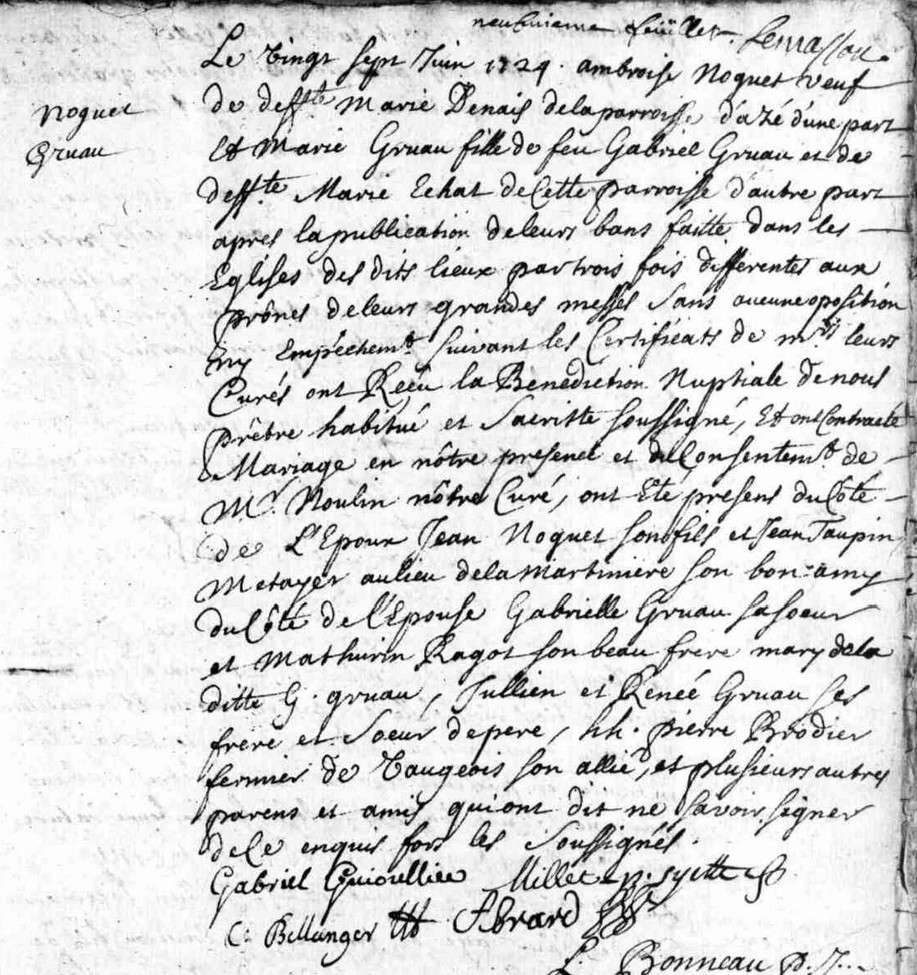 neufvieme feüillet Lemasson
Noquet
Gruau
Le Vingt sept Juin 1724. ambroise Noquet veuf
de deffte. Marie Denais dela parroisse d'azé d'une part
Et Marie Gruau fille de feu Gabriel Gruau et de
deffte. Marie Echat de Cette parroisse d'autre part
apres la publication de leurs bans faitte dans les
Eglises des dits lieux par trois fois differentes aux
prônes de leurs grandes messes sans aucune oposition
ny Empéchemt. suivant les Certificats de mrs. leurs
Curés ont Reçu la Benediction Nuptiale de nous
prêtre habitué et Sacritte soussigné, Et ont Contracte
Mariage en nôtre presence et du Consentemt. de
Mr. Moulin nôtre Curé, ont Eté presens du Côté
de L'Epoux Jean Noquet son fils et Jean Taupin
Metayer au lieu de la Martiniere son bon amy
du Côté de l'Epouse Gabrielle Gruau sa soeur
et Mathurin Ragot son beau frere mary de la
ditte G. gruau, Jullien et Renée Gruau ses
frere et Soeur de pere, hh. pierre Brodier
fermier de Vaugeois son allié, et plusieurs autres
parens et amis qui ont dit ne savoir signer
de Ce enquis fors les Soussignés.
Gabriel Millet
C. Bellanger Abrard
Bonneau